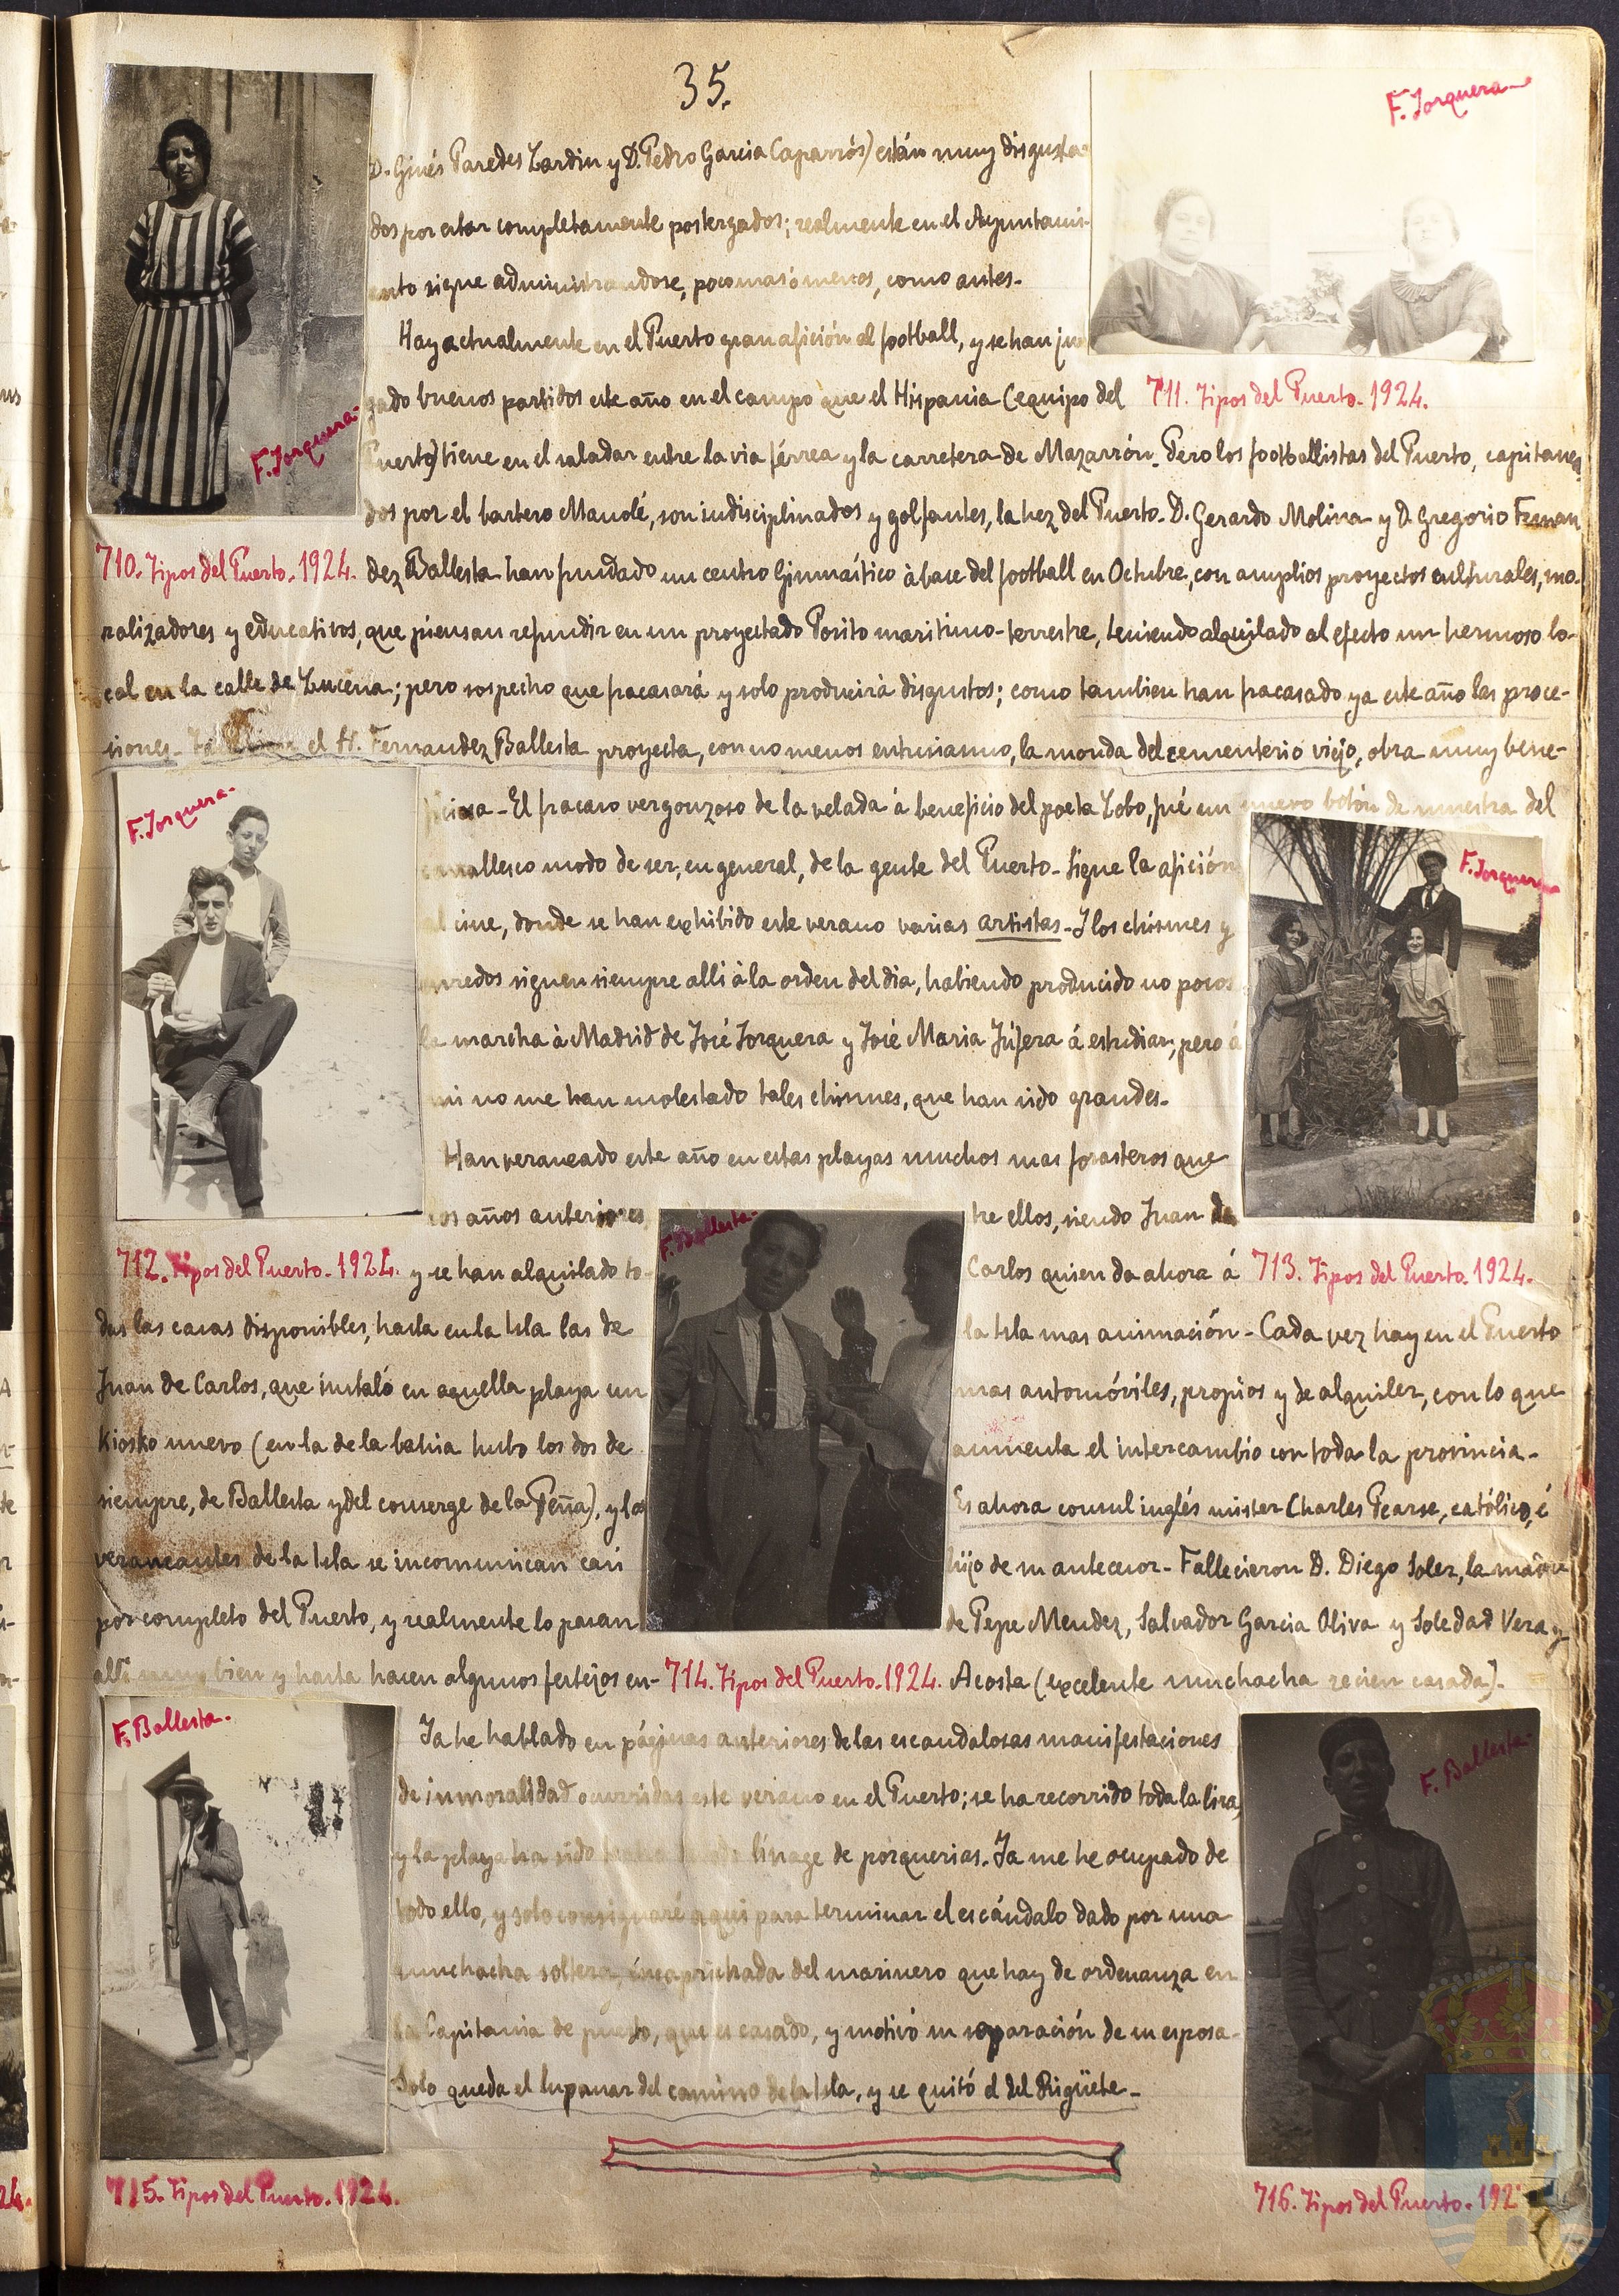 35.
F. Jorquera-
D. Ginés Paredes Zardin y D. Pedro Garcia Caparrós) están muy disgusta-
dos por estar completamente postergados; realmente en el Ayuntami-
ento sigue administrandose, poco mas ó menos, como antes.
Hay actualmente en el Puerto gran afición al football, y se han ju
gado buenos partidos este año en el campo que el Hispania (equipo del
711. Tipos del Puerto. 1924.
Puerto) tiene en el saladar entre la via férrea y la carretera de Mazarrón. Pero los footballistas del Puerto, capitanea
F. Jorquera-
dos por el barbero Manolé, son indisciplinados y golfantes, la hez del Puerto. D. Gerardo Molina y D. Gregorio Fernan
710. Tipos del Puerto. 1924.
dez Ballesta han fundado un centro Gimnástico à base del football en Octubre, con amplios proyectos culturales, mo-
ralizadores y educativos, que piensan refundir en un proyectado Pósito maritimo-terrestre, teniendo alquilado al efecto un hermoso lo-
cal en la calle de Lucena; pero sospecho que fracasará y solo producirà disgustos; como tambien han fracasado ya este año las proce-
siones. el Sr. Fernandez Ballesta proyecta, con no menos entusiasmo, la monda del cementerio viejo, obra muy bene-
F. Jorquera-
ficiosa - El fracaso vergonzoso de la velada á beneficio del poeta Lobo, fué un nuevo botón de muestra del
canallesco modo de ser, en general, de la gente del Puerto - Sigue la afición
F. Jorquera
al cine, donde se han exhibido este verano varias artistas - Y los chismes y
enredos siguen siempre alli à la orden del dia, habiendo producido no pocos
la marcha à Madrid de José Jorquera y José Maria Júfera á estudiar, pero á
mi no me han molestado tales chismes, que han sido grandes.
Han veraneado este año en estas playas muchos mas forasteros que
los años anteriores,
712. Tipos del Puerto. 1924.
y se han alquilado to-
das las casas disponibles, hasta en la Isla las de
Juan de Carlos, que instaló en aquella playa un
Kiosko nuevo (en la de la bahia hubo los dos de
siempre, de Ballesta y del conserge de la Peña), y los
veraneantes de la Isla se incomunican casi
por completo del Puerto, y realmente lo pasan
alli muy bien y hasta hacen algunos festejos en-
F. Ballesta-
714. Tipos del Puerto. 1924.
tre ellos, siendo Juan de
Carlos quien da ahora á
713. Tipos del Puerto. 1924.
la Isla mas animación - Cada vez hay en el Puerto
mas automóviles, propios y de alquiler, con lo que
aumenta el intercambio con toda la provincia -
Es ahora consul inglés mister Charles Pearse, católico, é
hijo de su antecesor - Fallecieron D. Diego Soler, la madre
de Pepe Mendez, Salvador Garcia Oliva y Soledad Vera y
Acosta (excelente muchacha recien casada).
F. Ballesta-
Ya he hablado en páginas anteriores de las escandalosas manifestaciones
de inmoralidad ocurridas este verano en el Puerto; se ha recorrido toda la lira,
F. Ballesta-
y la playa ha sido linage de porquerias. Ya me he ocupado de
todo ello, y solo consignaré aqui para terminar el escándalo dado por una
muchacha soltera, encaprichada del marinero que hay de ordenanza en
la Capitania de puerto, que es casado, y motivó su separación de su esposa -
Solo queda el lupanar del camino de la Isla, y se quitó el del Rigüete -
715. Tipos del Puerto. 1924.
716. Tipos del Puerto. 192